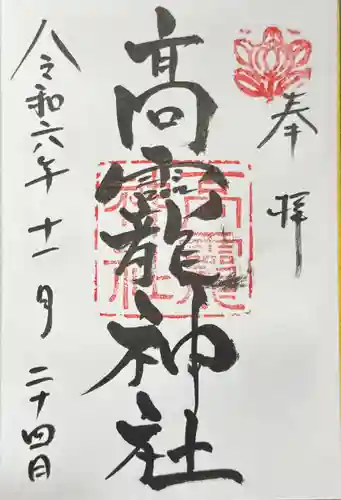 奉拝
高龗神社
令和六年十一月二十四日